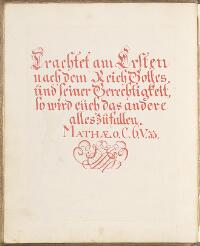 Trachtet am Ersten
nach dem Reich Gottes,
und seiner Gerechtigkeit,
so wird eüch das andere
alles zufallen.
MATHÆ. 6. C. 6. V. 33.